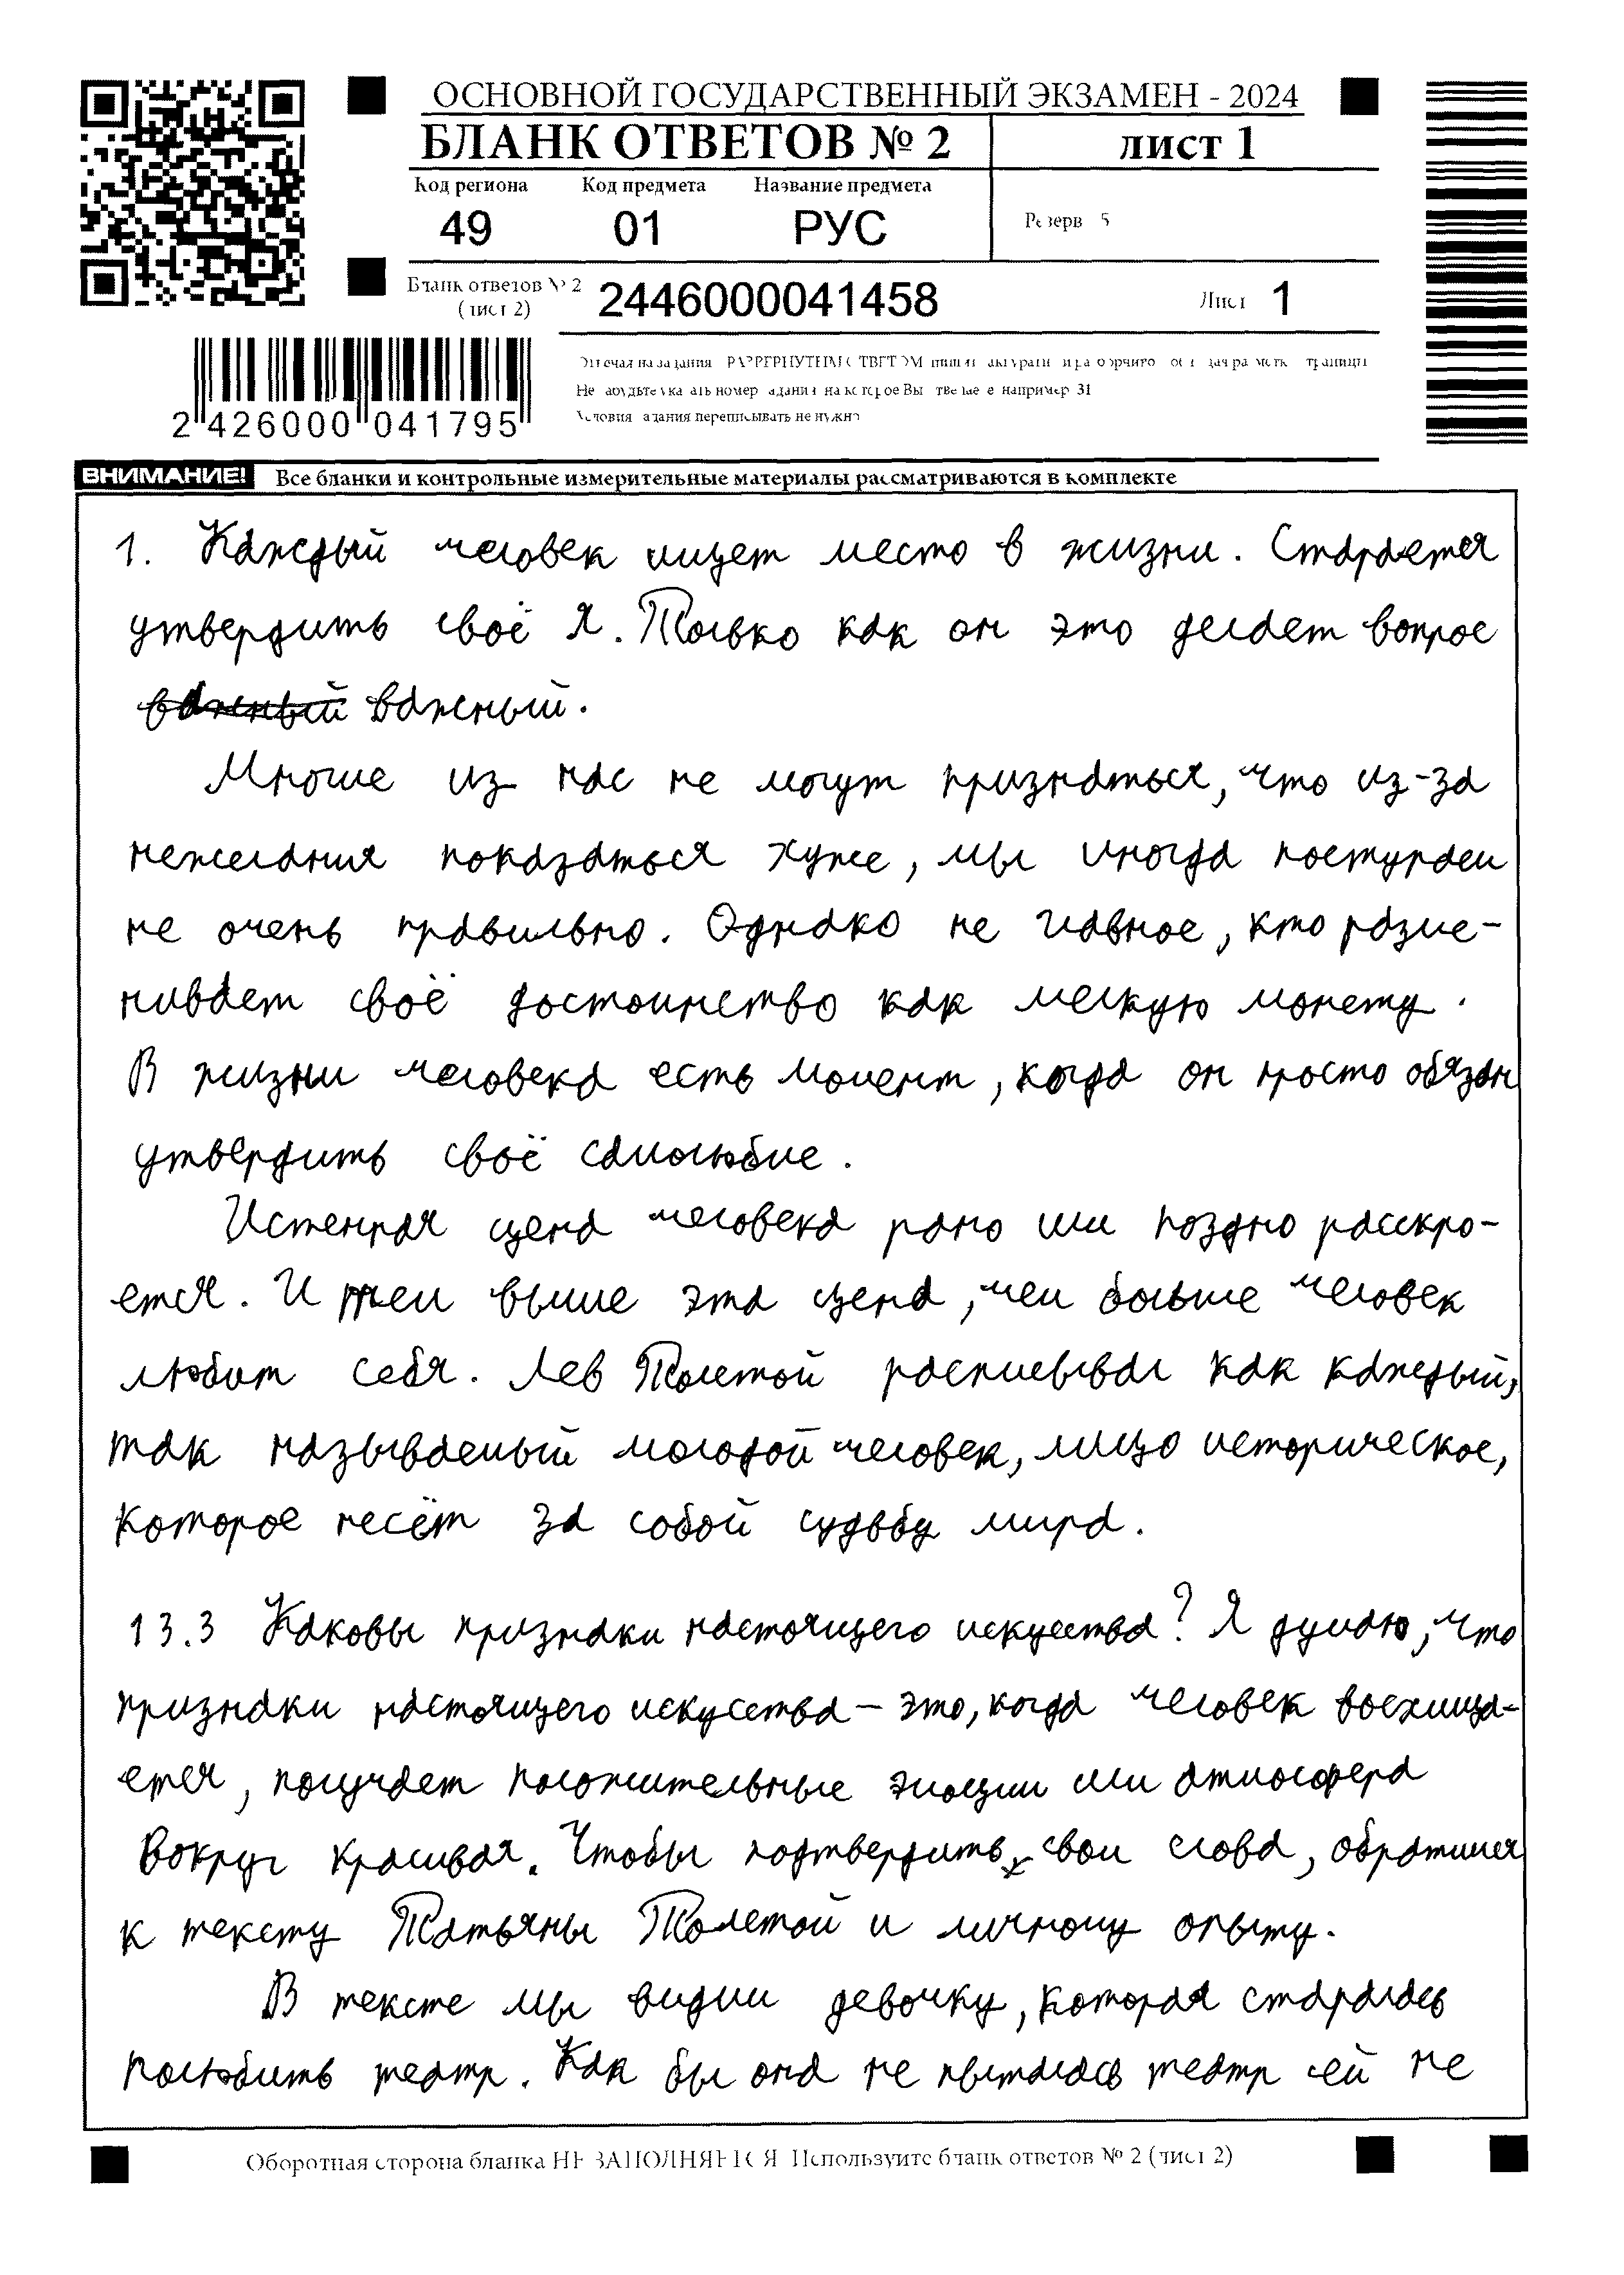 ОСНОВНОЙ ГОСУДАРСТВЕННЫЙ ЭКЗАМЕН - 2024
БЛАНК ОТВЕТОВ № 2
лист 1
Код региона Код предмета Название предмета
49 01 РУС
Резерв 5
Бланк ответов № 2 (лист 2) 2446000041458
Лист 1
2 426000 041795
Условия задания переписывать не нужно
ВНИМАНИЕ! Все бланки и контрольные измерительные материалы рассматриваются в комплекте
1. Каждый человек ищет место в жизни. Старается
утвердить своё Я. Только как он это делает вопрос
важный важный.
Многие из нас не могут признаться, что из-за
нежелания показаться хуже, мы иногда поступаем
не очень правильно. Однако не главное, кто разме-
нивает своё достоинство как мелкую монету.
В жизни человека есть момент, когда он просто обязан
утвердить своё самолюбие.
Истенная цена человека рано или поздно расскро-
ется. И тем выше эта цена, чем больше человек
любит себя. Лев Толстой расписывал как каждый,
так называемый молодой человек, лицо историческое,
которое несёт за собой судьбу мира.
13.3 Каковы признаки настоящего искусства? Я думаю, что
признаки настоящего искусства – это, когда человек восхища-
ется, получает положительные эмоции или атмосфера
вокруг красивая. Чтобы подтвердить свои слова, обратимся
к тексту Татьяны Толстой и личному опыту.
В тексте мы видим девочку, которая старалась
полюбить театр. Как бы она не пыталась театр ей не
Оборотная сторона бланка НЕ ЗАПОЛНЯЕТСЯ. Используйте бланк ответов № 2 (лист 2)